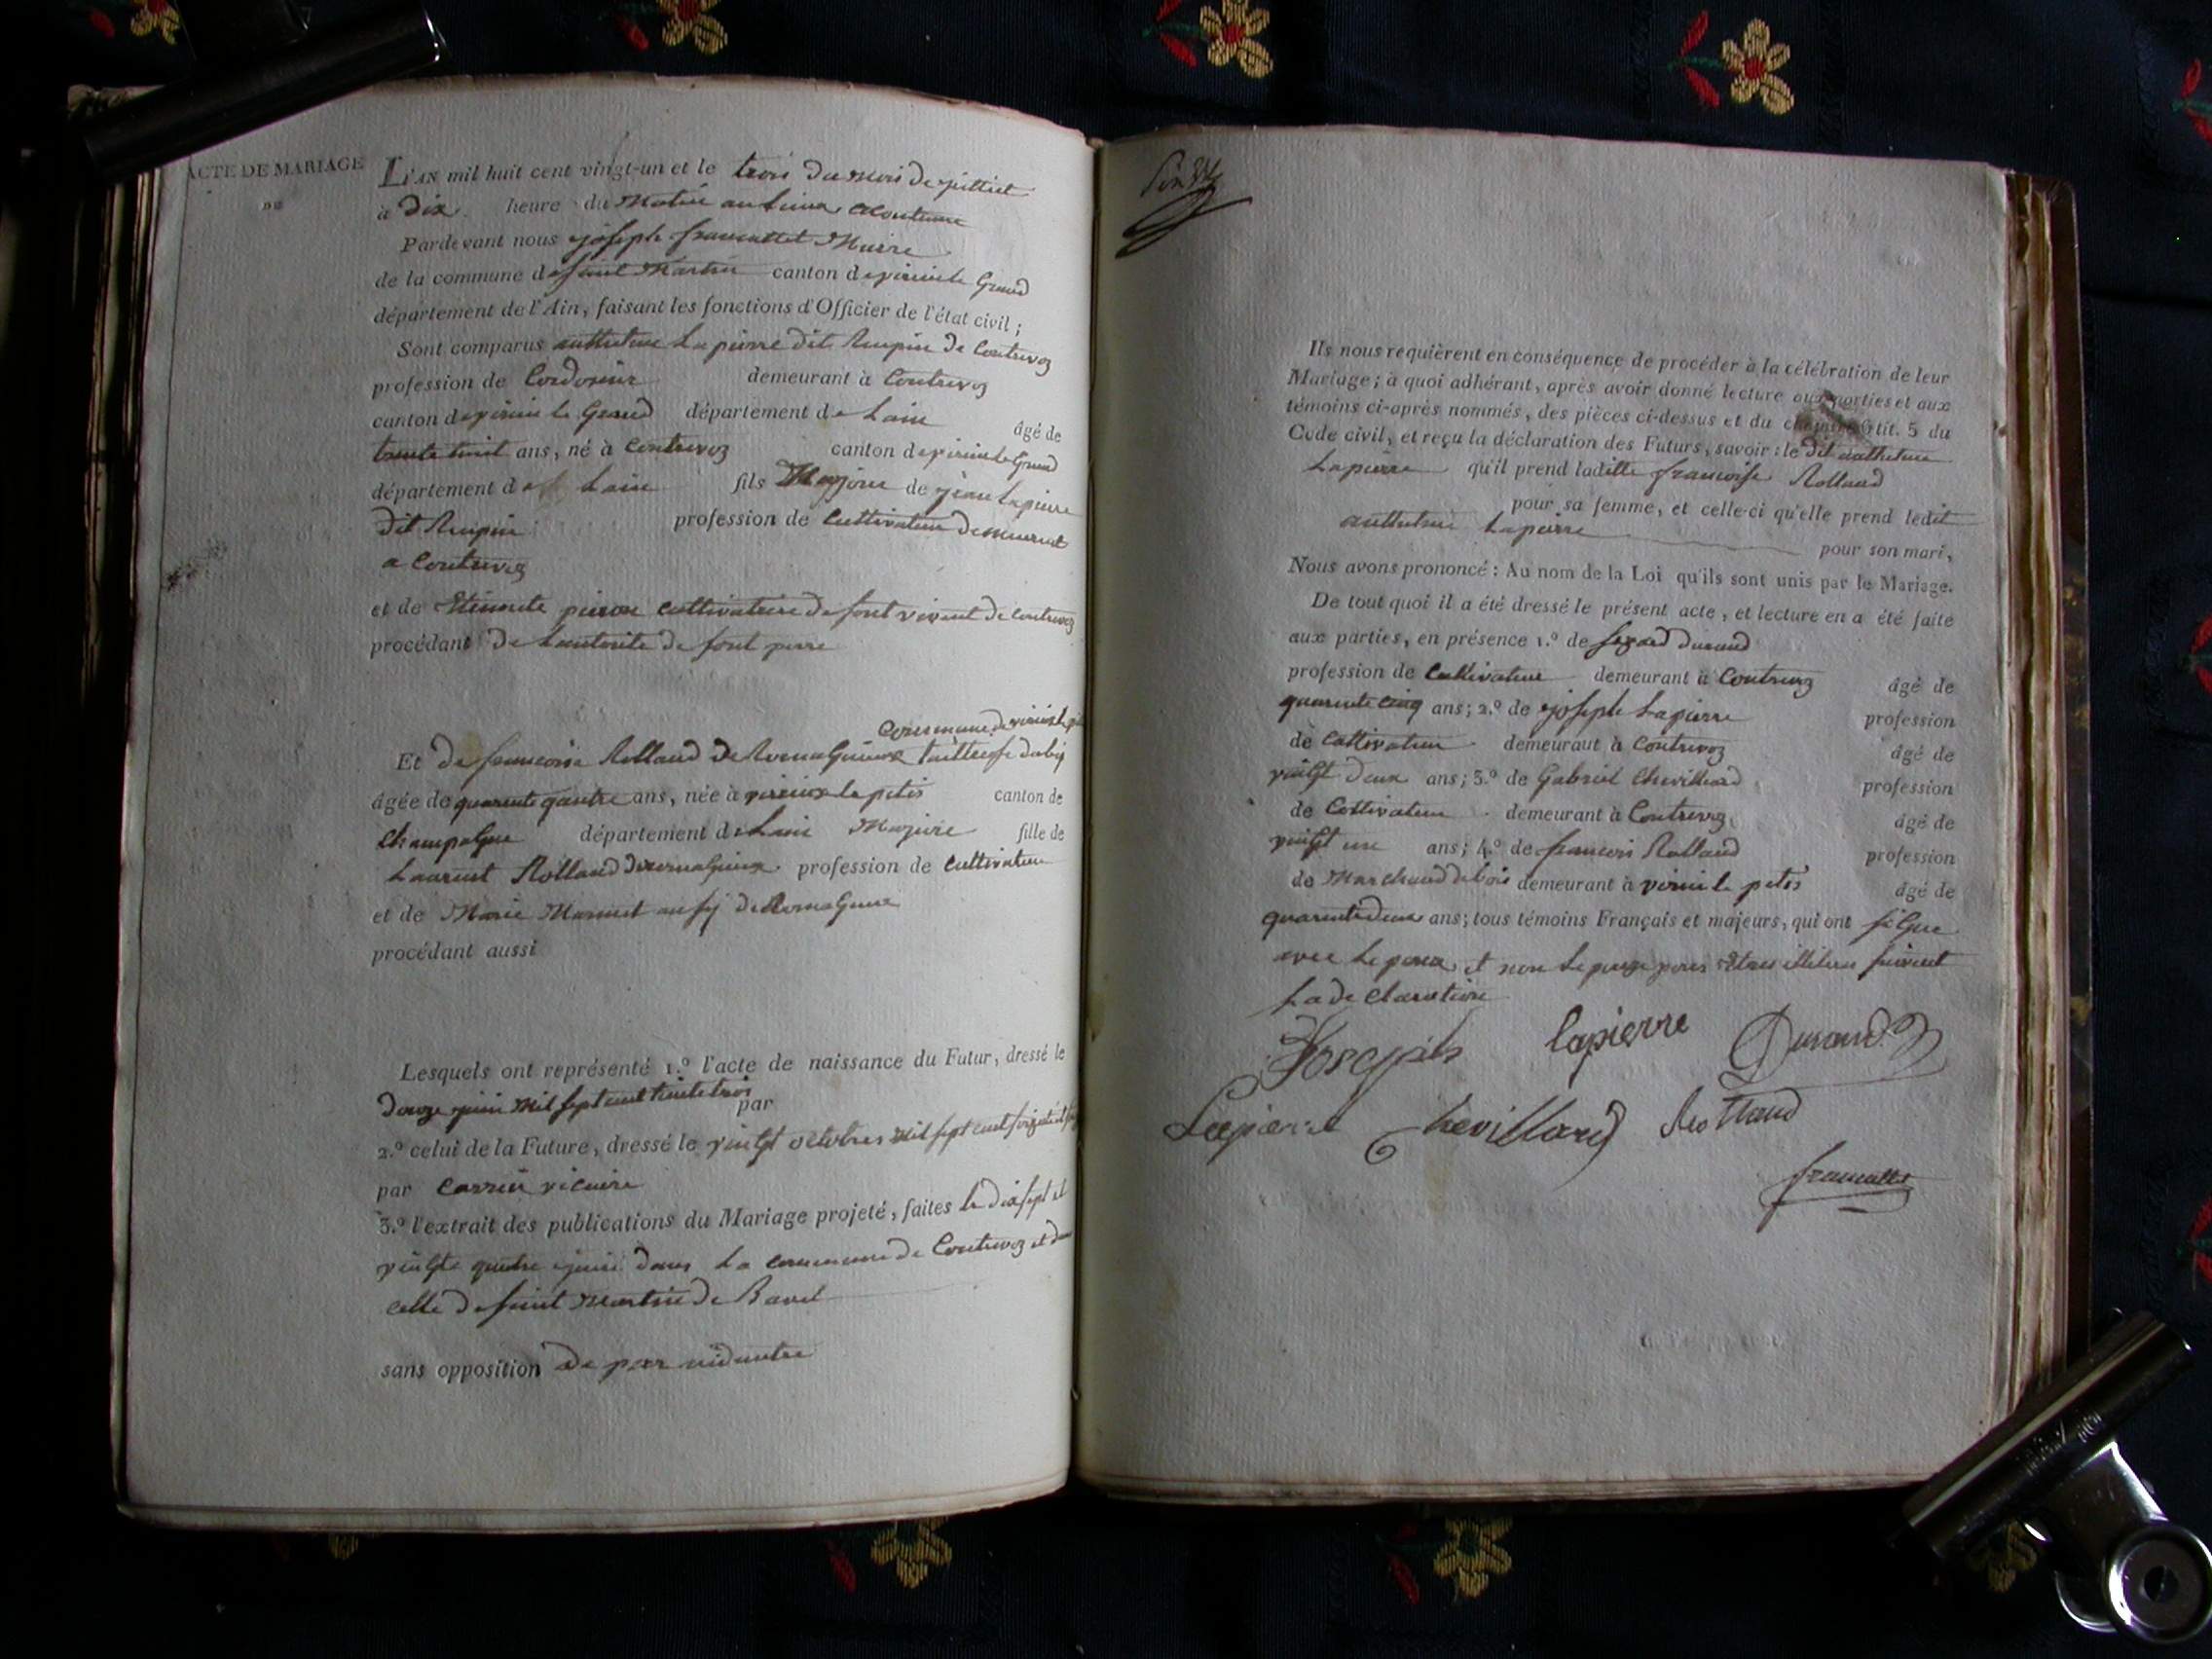 ACTE DE MARIAGE
DE
L'AN mil huit cent vingt-un et le trois du mois de juilliet
à dix heure du Matin
Pardevant nous joseph francallet Maire
de la commune de saint Martin canton de virieu le Grand
département de l'Ain, faisant les fonctions d'Officier de l'état civil ;
Sont comparus anthelme Lapierre dit Rupin de Contrevoz
profession de Cordonier demeurant à Contrevoz
canton de virieu le Grand département de Lain âgé de
ans, né à Contrevoz canton de virieu le Grand
département de Lain fils Majeur de jean Lapierre
dit Rupin profession de Cultivateur demeurant
a Contrevoz
et de Etiennete cultivatrice de font vivant de contrevoz
procédant de Lautorite de sont perre
Commune de virieu le petit
Et de francoise Rolland de
âgée de quarente quatre ans, née à virieux le petit canton de
Champagne département de Lain Majeure fille de
Laurent Rolland profession de Cultivateur
et de Marie
procédant aussi
Lesquels ont représenté 1.º l'acte de naissance du Futur, dressé le
douze juin Mil sept cent par
2.º celui de la Future, dressé le vingt octobres Mil sept cent
par vicaire
3.º l'extrait des publications du Mariage projeté, faites le dix sept et
vingte quatre juin dans La commune de Contrevoz et dans
celle de saint Martin de Bavel
sans opposition de par
Ils nous requièrent en conséquence de procéder à la célébration de leur
Mariage ; à quoi adhérant, après avoir donné lecture aux parties et aux
témoins ci-après nommés, des pièces ci-dessus et du chapitre 6 tit. 5 du
Code civil, et reçu la déclaration des Futurs, savoir : le dit anthelme
Lapierre qu'il prend ladille francoise Rolland
pour sa femme, et celle-ci qu'elle prend ledit
anthelme Lapierre pour son mari,
Nous avons prononcé : Au nom de la Loi qu'ils sont unis par le Mariage.
De tout quoi il a été dressé le présent acte, et lecture en a été faite
aux parties, en présence 1.º de durand
profession de Cultivateur demeurant à Contrevoz âgé de
quarente cinq ans ; 2.º de joseph Lapierre profession
de Cultivateur demeurant à Contrevoz âgé de
vingt deux ans ; 3.º de Gabriel Chevilliard profession
de Coltivateur demeurant à Contrevoz âgé de
vingt un ans ; 4.º de francois Rolland profession
de Marchand de bois demeurant à virieu le petit âgé de
quarente deux ans ; tous témoins Français et majeurs, qui ont signe
avec Lepoux et non Lepouze pour Etres illitere suivent
La de Claration
Joseph lapierre Durand
Lapierre Chevillard Rolland
francallet